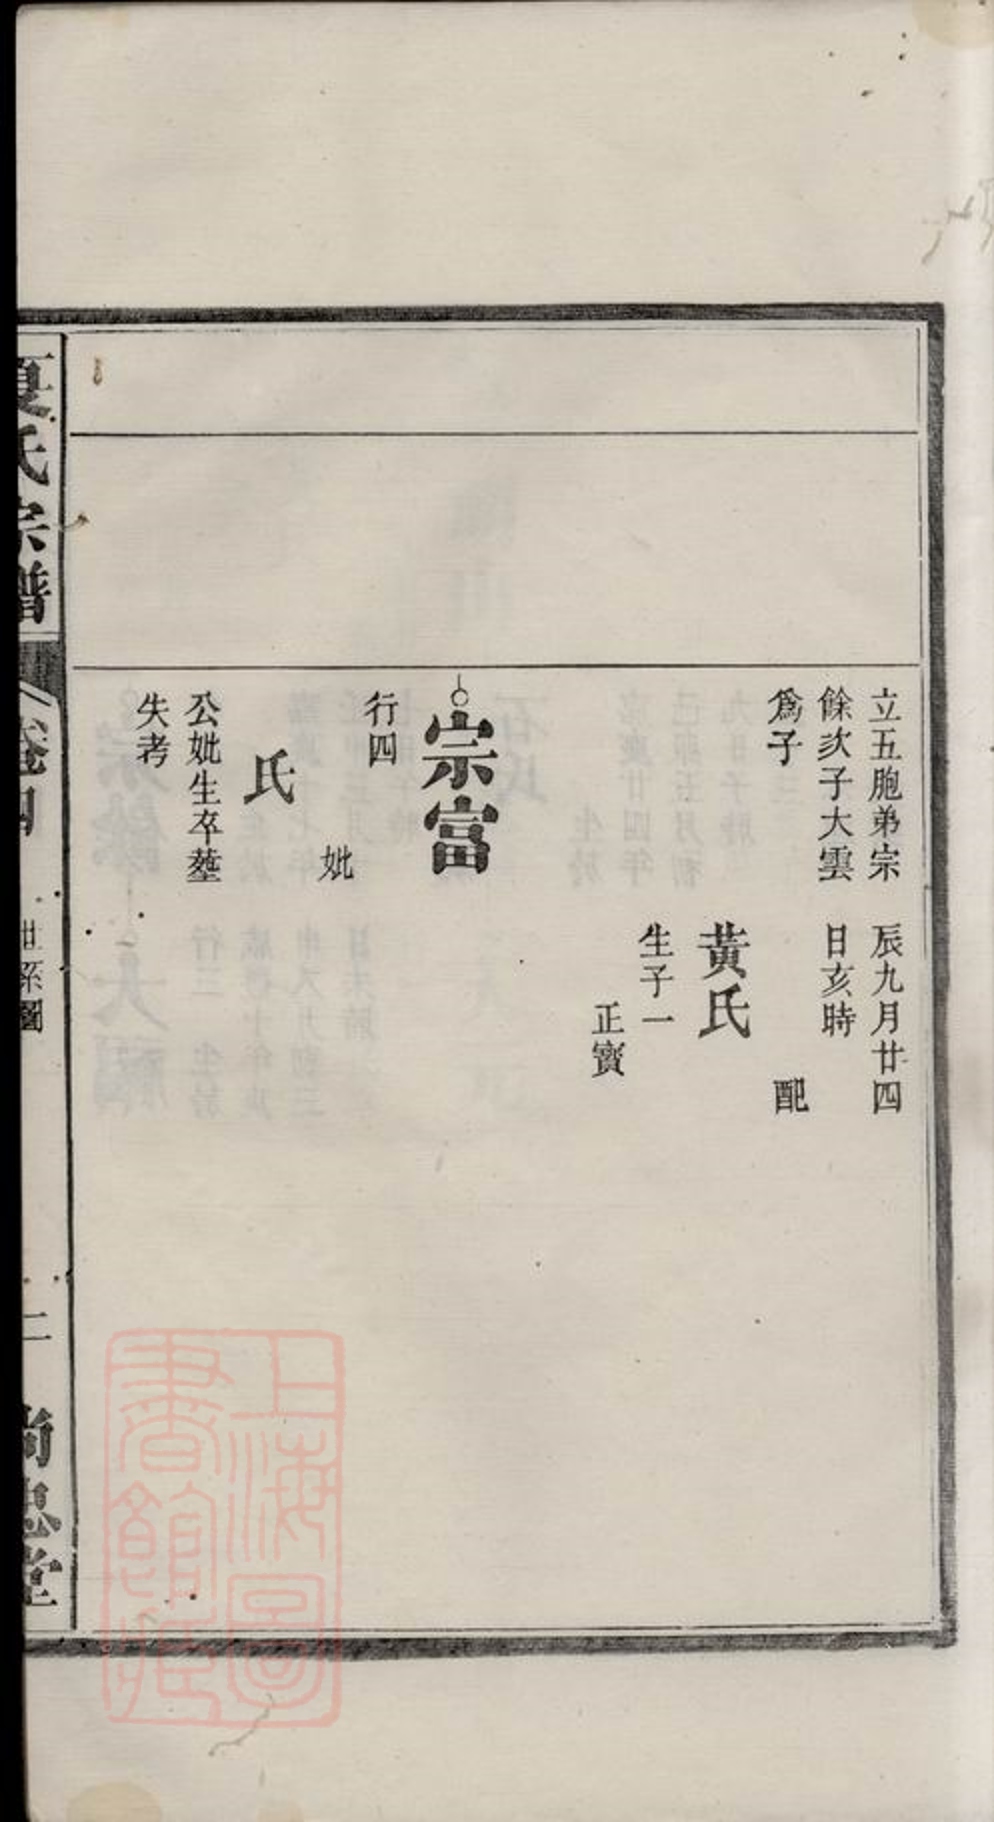 立五胞弟宗
餘次子大雲
爲子
辰九月廿四
日亥時
配
黃氏
生子一
正寶
宗富
行四
妣
氏
公妣生卒塟
失考
夏氏宗譜
卷四
世系圖
二
尚忠堂
上海圖
書館藏